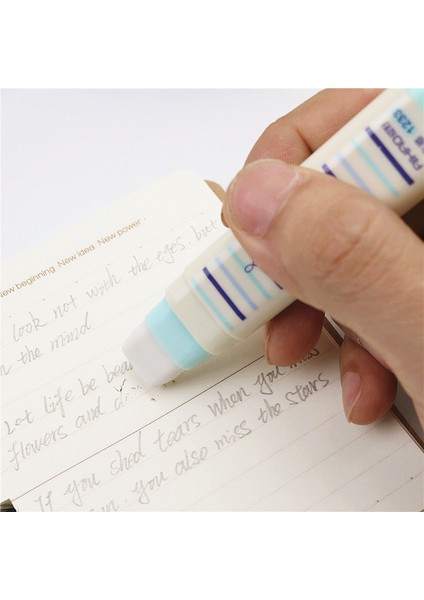 New beginning New idea New power
look not with the eyes, but
the mind
Let life be
flowers and
If you shed tears when you miss
you also miss the stars
1233